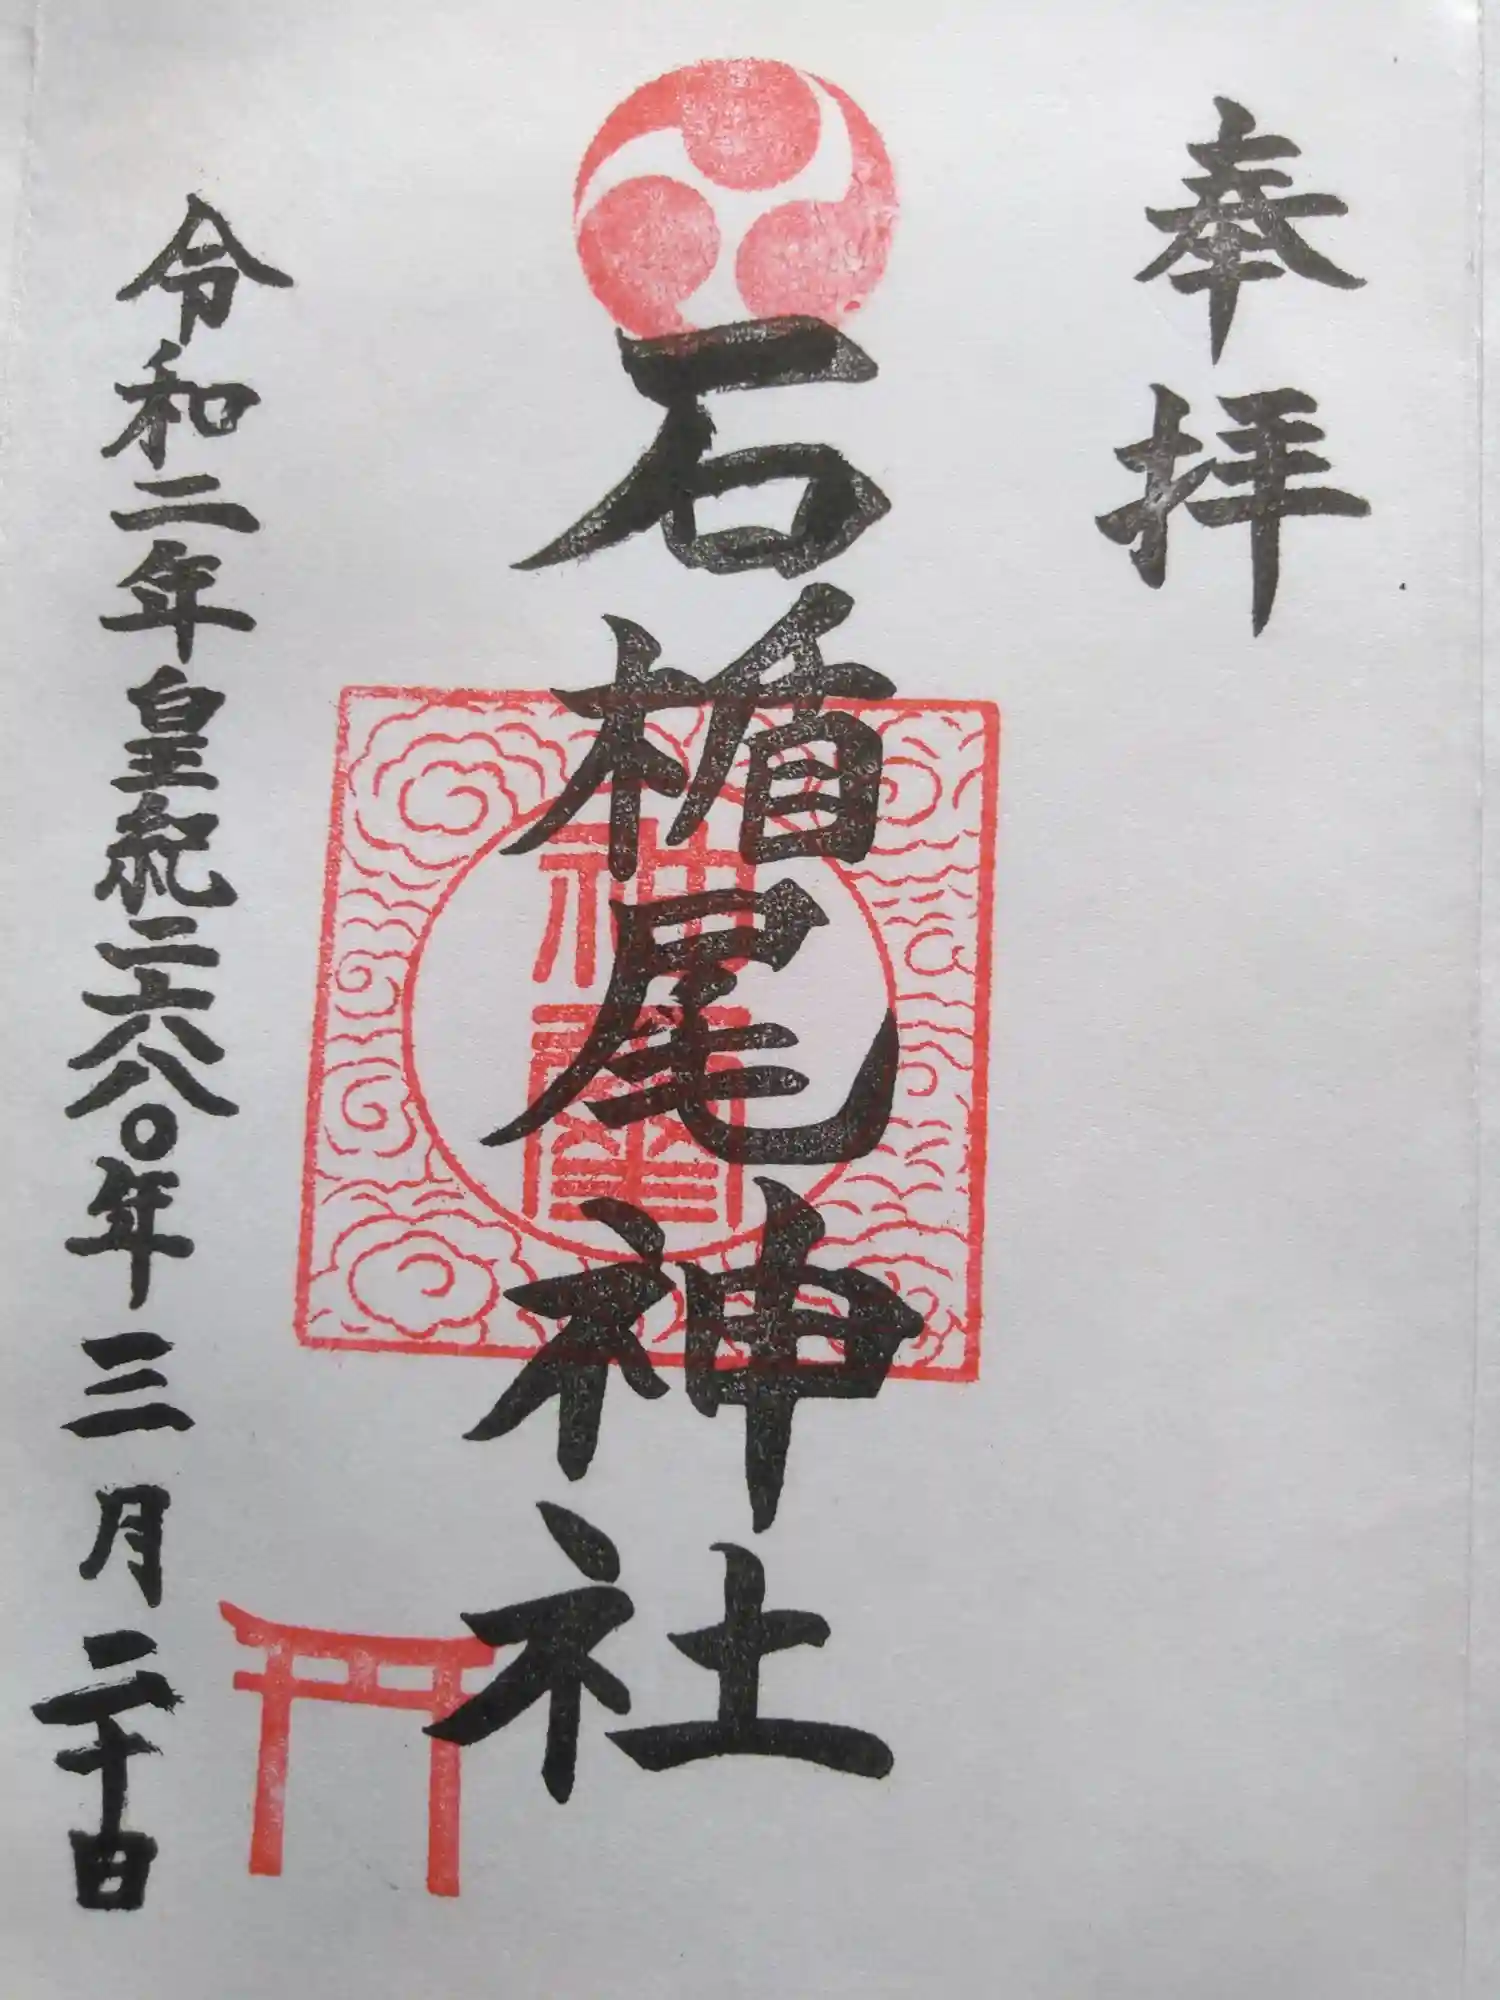 奉拝
石楯尾神社
神璽
令和二年皇紀二六八〇年三月二十日